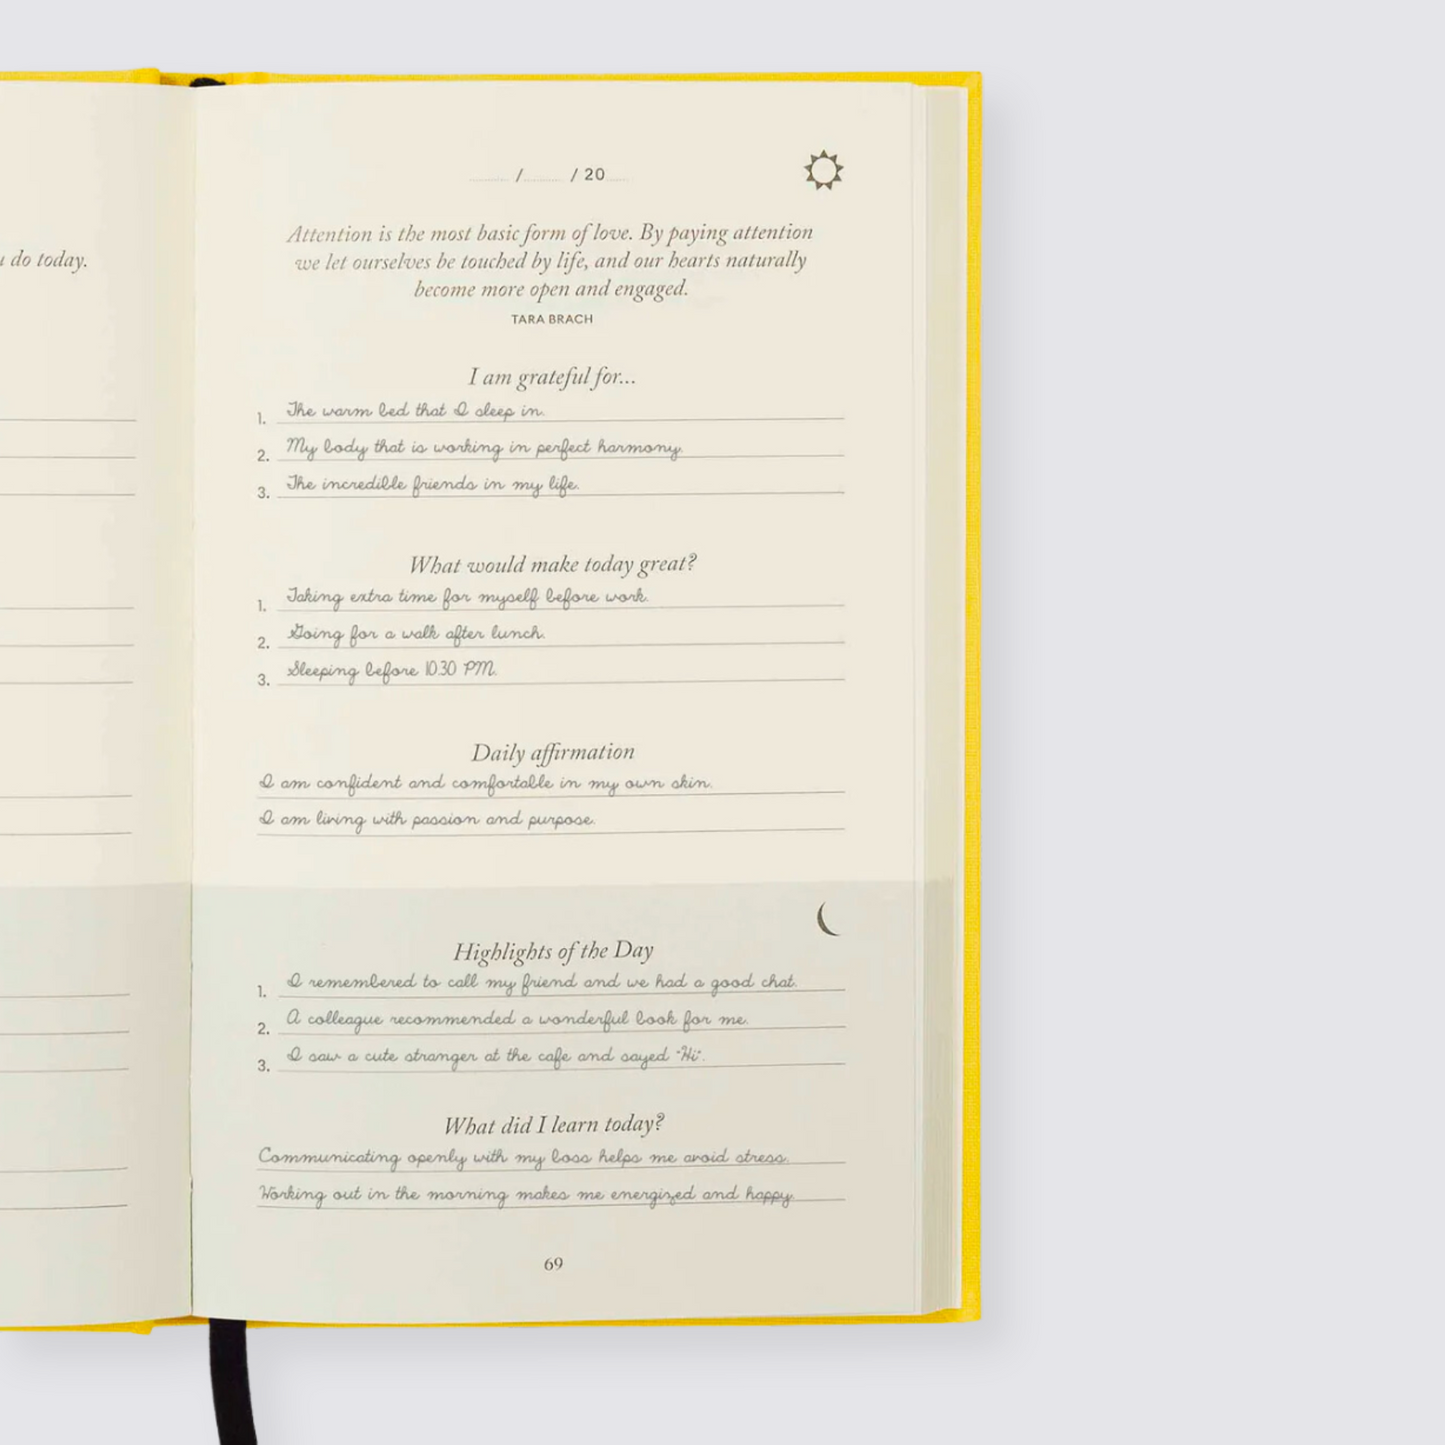 do today.
/ / 20
Attention is the most basic form of love. By paying attention
we let ourselves be touched by life, and our hearts naturally
become more open and engaged.
TARA BRACH
I am grateful for...
1. The warm bed that I sleep in.
2. My body that is working in perfect harmony.
3. The incredible friends in my life.
What would make today great?
1. Taking extra time for myself before work.
2. Going for a walk after lunch.
3. Sleeping before 10.30 PM.
Daily affirmation
I am confident and comfortable in my own skin.
I am living with passion and purpose.
Highlights of the Day
1. I remembered to call my friend and we had a good chat.
2. A colleague recommended a wonderful book for me.
3. I saw a cute stranger at the cafe and sayed "Hi".
What did I learn today?
Communicating openly with my boss helps me avoid stress.
Working out in the morning makes me energized and happy.
69